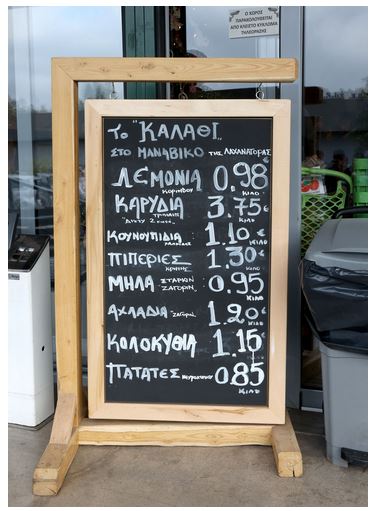 Ο ΧΩΡΟΣ
ΠΑΡΑΚΟΛΟΥΘΕΙΤΑΙ
ΑΠΟ ΚΛΕΙΣΤΟ ΚΥΚΛΩΜΑ
ΤΗΛΕΟΡΑΣΗΣ
Το "ΚΑΛΑΘΙ"
ΣΤΟ ΜΑΝΑΒΙΚΟ ΤΗΣ ΛΑΧΑΝΑΓΟΡΑΣ
ΛΕΜΟΝΙΑ ΚΟΡΙΝΘΟΥ 0.98 € ΚΙΛΟ
ΚΑΡΥΔΙΑ 3.75 € ΚΙΛΟ
ΚΟΥΝΟΥΠΙΔΙΑ 1.10 € ΚΙΛΟ
ΠΙΠΕΡΙΕΣ ΚΡΗΤΗΣ 1.30 € ΚΙΛΟ
ΜΗΛΑ ΣΤΑΡΚΙΝ ΖΑΓΟΡΙΝ. 0.95 ΚΙΛΟ
ΑΧΛΑΔΙΑ ΖΑΓΟΡΙΝ. 1.20 € ΚΙΛΟ
ΚΟΛΟΚΥΘΙΑ 1.15 €
ΠΑΤΑΤΕΣ 0.85 ΚΙΛΟ